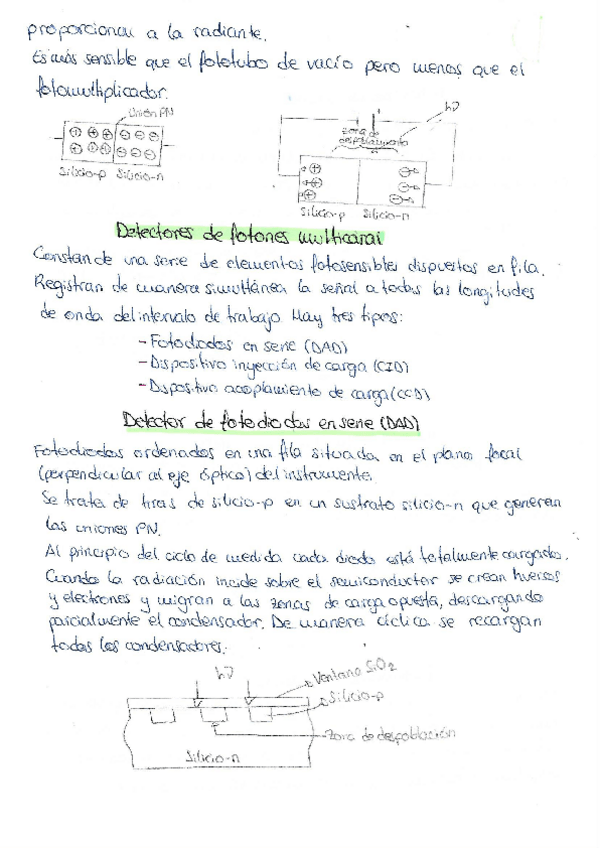 proporcional a la radiante.
Es más sensible que el fototubo de vacío pero menos que el
fotomultiplicador.
Unión PN
hν
zona de
Silicio-p Silicio-n
Silicio-p Silicio-n
Detectores de fotones multicanal
Constan de una serie de elementos fotosensibles dispuestos en fila.
Registran de manera simultánea la señal a todas las longitudes
de onda del intervalo de trabajo. Hay tres tipos:
- Fotodiodos en serie (DAD)
- Dispositivo inyección de carga (CID)
- Dispositivo acoplamiento de carga (CCD)
Detector de fotodiodos en serie (DAD)
Fotodiodos ordenados en una fila situada en el plano focal
(perpendicular al eje óptico) del instrumento.
Se trata de tiras de silicio-p en un sustrato silicio-n que generan
las uniones PN.
Al principio del ciclo de medida cada diodo está totalmente cargado.
Cuando la radiación incide sobre el semiconductor se crean huecos
y electrones y migran a las zonas de carga opuesta, descargando
parcialmente el condensador. De manera cíclica se recargan
todos los condensadores.
hν
Ventana SiO2
Silicio-p
Zona de despoblación
Silicio-n